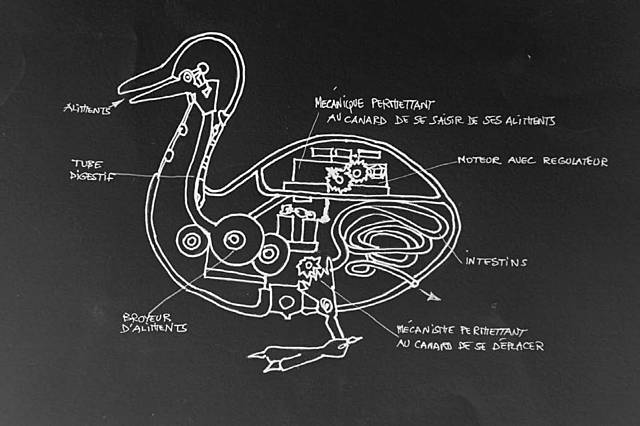 ALIMENTS
MÉCANIQUE PERMETTANT
AU CANARD DE SE SAISIR DE SES ALIMENTS
MOTEUR AVEC REGULATEUR
TUBE
DIGESTIF
INTESTINS
BROYEUR
D'ALIMENTS
MÉCANISME PERMETTANT
AU CANARD DE SE DÉPLACER